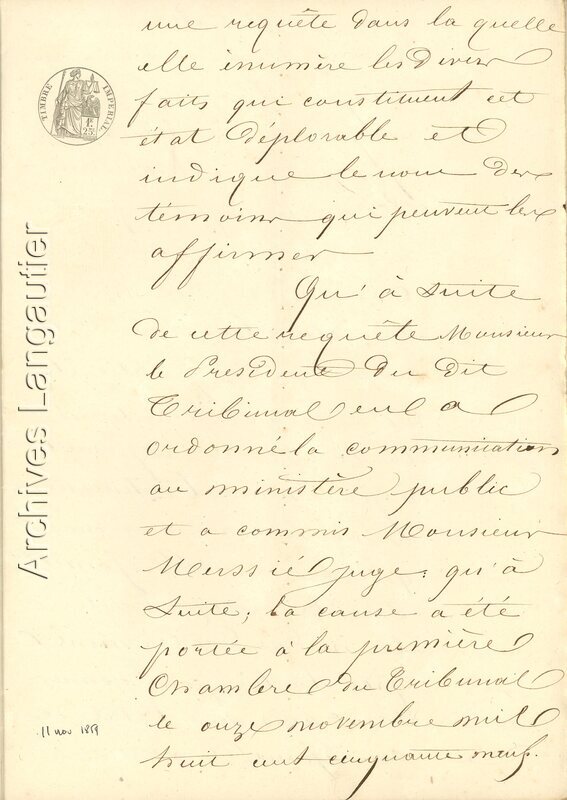 une requête dans la quelle
elle énumère les divers
faits qui constituent cet
état déplorable et
indique le nom des
témoins qui peuvent les
affirmer
Qu'à suite
de cette requête Monsieur
le Président du dit
Tribunal en a
ordonné la communication
au ministère public
et a commis Monsieur
juge; qu'à
suite, la cause a été
portée à la première
Chambre du Tribunal
le onze novembre mil
huit cent cinquante neuf.
TIMBRE IMPERIAL
1F
25c
Archives Langautier
11 nov 1859